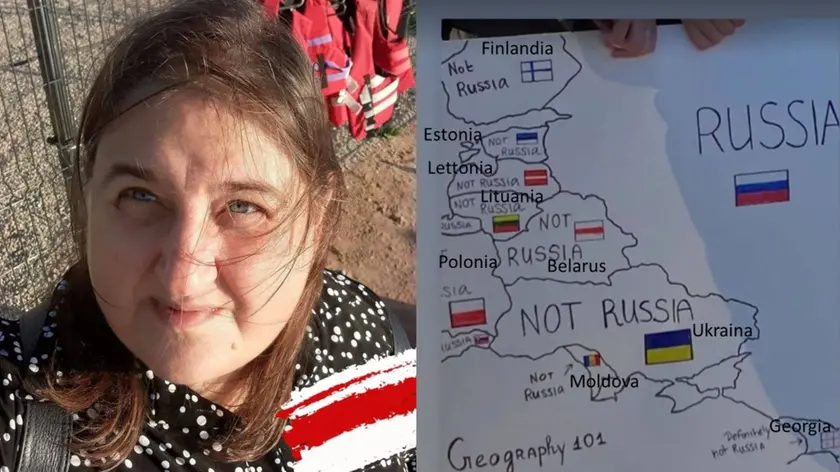 Finlandia
Not
Russia
Estonia
NOT
RUSSIA
Lettonia
NOT RUSSIA
Lituania
NOT
RUSSIA
RUSSIA
NOT
RUSSIA
Belarus
Polonia
SIA
RUSSIA
NOT RUSSIA
Ukraina
NOT
RUSSIA
Moldova
RUSSIA
Georgia
Definitely
not Russia
Geography 101